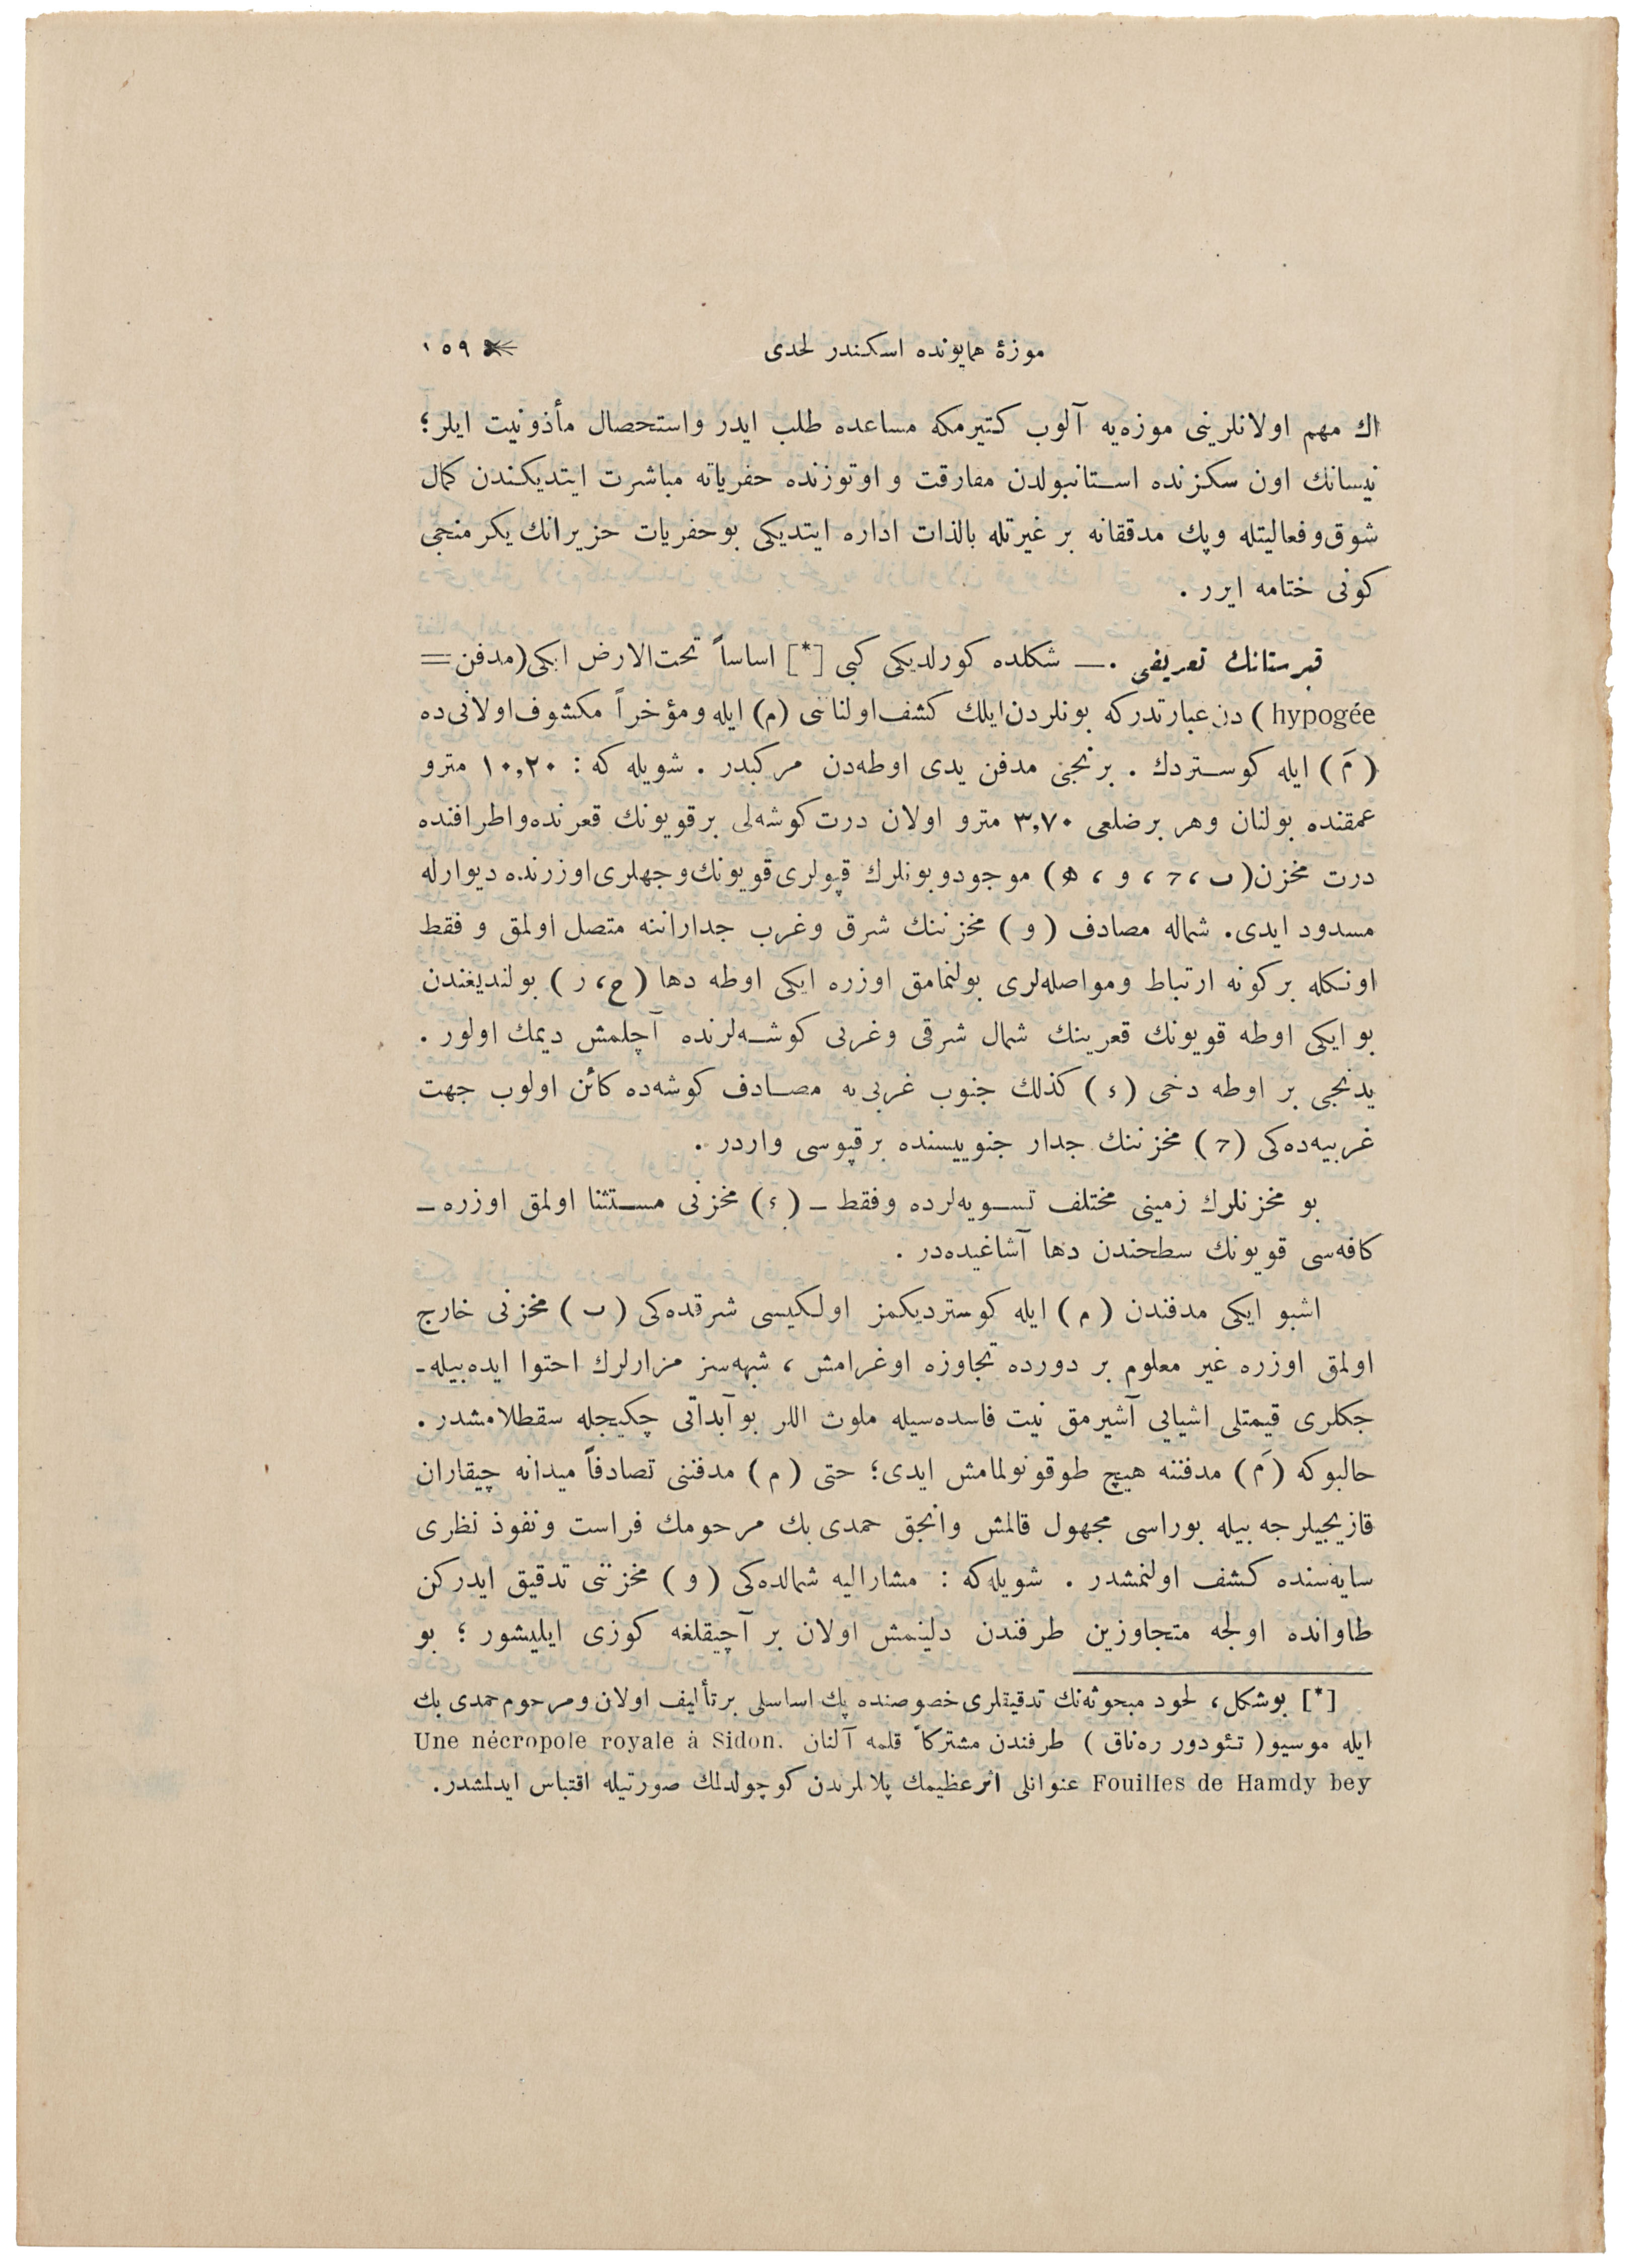 موزهٔ همایونده اسكندر لحدی ١٥٩
اك مهم اولانلرینی موزه‌یه آلوب كتیرمكه مساعده طلب ایدر واستحصال مأذونیت ایلر؛
نیسانك اون سكزنده استانبولدن مفارقت و اوتوزنده حفریاته مباشرت ایتدیكندن كمال
شوق‌وفعالیتله وپك مدققانه بر غیرتله بالذات اداره ایتدیكی بوحفریات حزیرانك یكرمنجی
كونی ختامه ایرر .
قبرستانك تعریفی .— شكلده كورلدیكی كبی [*] اساساً تحت‌الارض ایكی(مدفن=
hypogée) دن‌عبارتدركه بونلردن‌ایلك كشف‌اولناننی (م) ایله ومؤخراً مكشوف‌اولانی‌ده
(مَ) ایله كوستردك . برنجی مدفن یدی اوطه‌دن مركبدر . شویله كه : ١٠,٢٠ مترو
عمقنده بولنان وهر برضلعی ٣,٧٠ مترو اولان درت كوشه‌لی برقویونك قعرنده‌واطرافنده
درت مخزن(ب ، ج ، و ، ه) موجودوبونلرك قپولری‌قویونك‌وجهلری‌اوزرنده دیوارله
مسدود ایدی. شماله مصادف (و) مخزننك شرق وغرب جدارلرینه متصل اولمق و فقط
اونكله بركونه ارتباط ومواصله‌لری بولنمامق اوزره ایكی اوطه دها (ح، ز) بولندیغندن
بو ایكی اوطه قویونك قعرینك شمال شرقی وغربی كوشه‌لرنده آچلمش دیمك اولور .
یدنجی بر اوطه دخی (ء) كذلك جنوب غربی‌یه مصادف كوشه‌ده كائن اولوب جهت
غربیه‌ده‌كی (ج) مخزننك جدار جنوبیسنده برقپوسی واردر .
بو مخزنلرك زمینی مختلف تسویه‌لرده وفقط – (ء) مخزنی مستثنا اولمق اوزره –
كافه‌سی قویونك سطحندن دها آشاغیده‌در .
اشبو ایكی مدفندن (م) ایله كوستردیكمز اولكیسی شرقده‌كی (ب) مخزنی خارج
اولمق اوزره غیر معلوم بر دورده تجاوزه اوغرامش ، شبهه‌سز مزارلرك احتوا ایده‌بیله-
جكلری قیمتلی اشیایی آشیرمق نیت فاسده‌سیله ملوث اللر بوآبداتی چكیجله سقطلامشدر .
حالبوكه (مَ) مدفننه هیچ طوقونولمامش ایدی؛ حتی (م) مدفننی تصادفاً میدانه چیقاران
قازیجیلرجه بیله بوراسی مجهول قالمش وانجق حمدی بك مرحومك فراست ونفوذ نظری
سایه‌سنده كشف اولنمشدر . شویله‌كه : مشارالیه شمالده‌كی (و) مخزننی تدقیق ایدركن
طاوانده اولجه متجاوزین طرفندن دلینمش اولان بر آچیقلغه كوزی ایلیشور ؛ بو
[*] بوشكل ، لحود مبحوثه‌نك تدقیقلری خصوصنده پك اساسلی برتألیف اولان‌ومرحوم حمدی بك
ایله موسیو(تئودور ره‌ناق) طرفندن مشتركاً قلمه آلنان Une nécropole royale à Sidon.
Fouilles de Hamdy bey عنوانلی اثرعظیمك پلانلرندن كوچولدلمك صورتیله اقتباس ایدلمشدر.